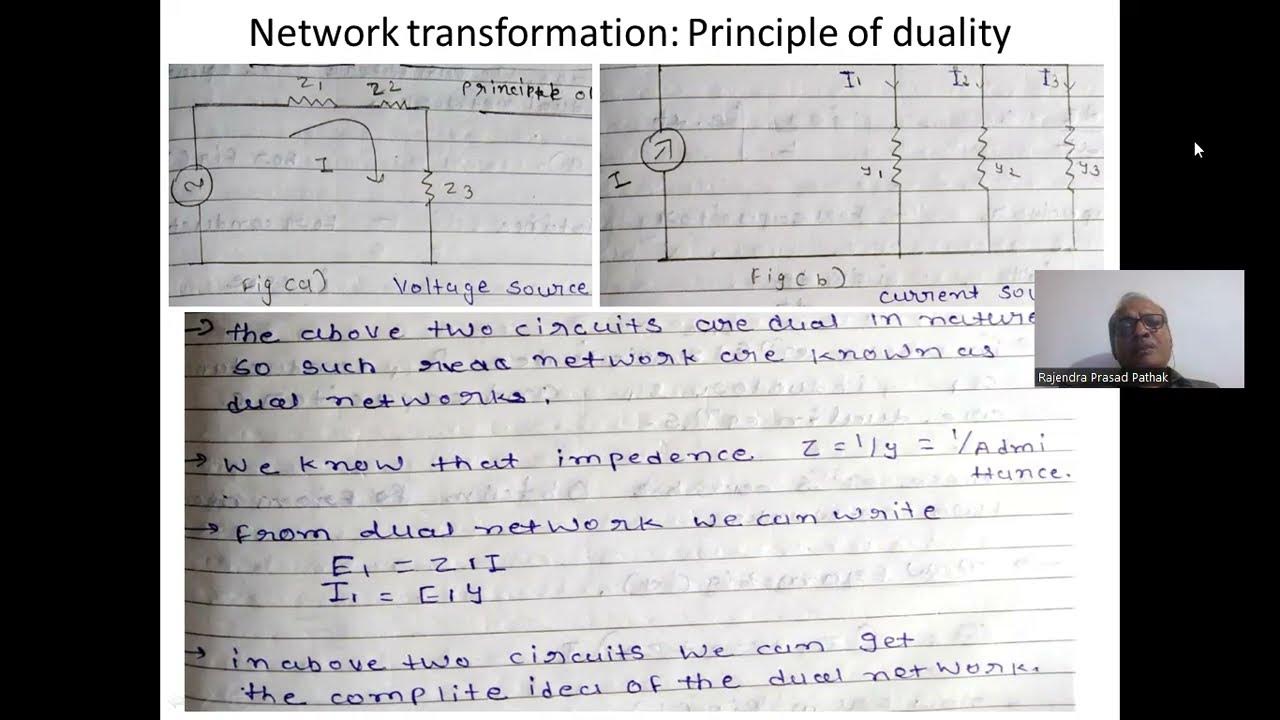 Network transformation: Principle of duality
Z1 Z2
Principle of
I
Z3
Fig(a) Voltage source
I1 I2 I3
I
y1 y2 y3
Fig(b)
current sou
→ the above two circuits are dual in nature
so such, network are known as
dual networks.
→ we know that impedence Z = 1/y = 1/Admi
ttance.
→ From dual network we can write
E1 = Z1I
I1 = E1y
→ in above two circuits we can get
the complite idea of the dual network.
Rajendra Prasad Pathak